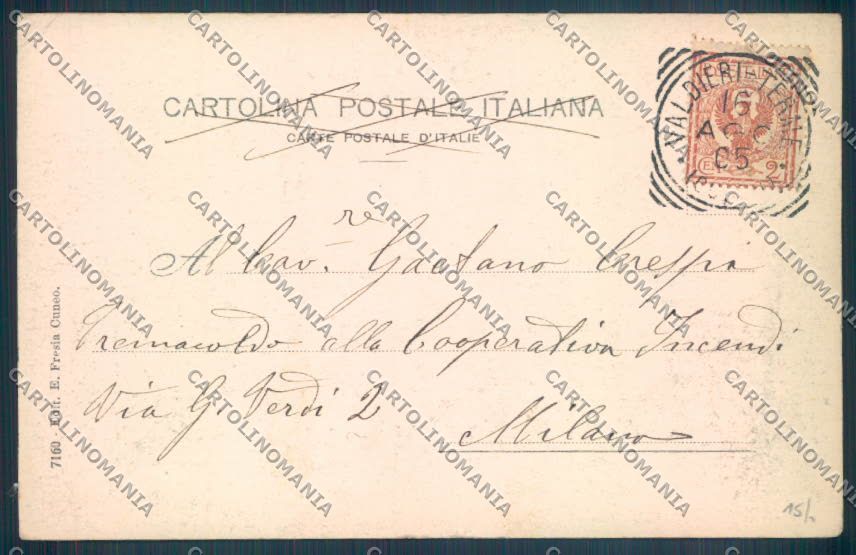 CARTOLINA POSTALE ITALIANA
CARTE POSTALE D'ITALIE
VALDIERI TERME
16
AGO
05
2
Al Cav.re Gaetano Crespi
Tremacoldo alla Cooperativa Incendi
Via G. Verdi 2
Milano
7160 - Edit. E. Fresia Cuneo.
15/
CARTOLINOMANIA